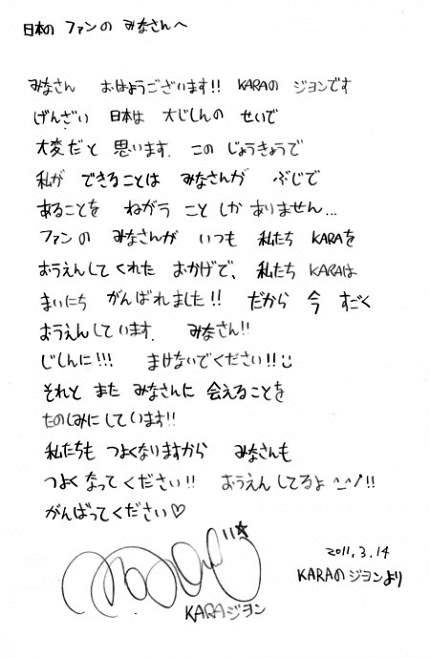 日本の ファンの みなさんへ
みなさん おはようございます!! KARAの ジヨンです
げんざい 日本は 大じしんの せいで
大変だと 思います. この じょうきょうで
私が できることは みなさんが ぶじで
あることを ねがう こと しか ありません...
ファンの みなさんが いつも 私たち KARAを
おうえんしてくれた おかげで、 私たち KARAは
まいにち がんばれました!! だから 今 すごく
おうえんしています. みなさん!!
じしんに!!! まけないでください!!
それと また みなさんに 会えることを
たのしみにしています!!
私たちも つよくなりますから みなさんも
つよくなってください!! おうえんしてるよ ^-^/!!
がんばってください♡
2011.3.14
KARAの ジヨンより
KARAジヨン